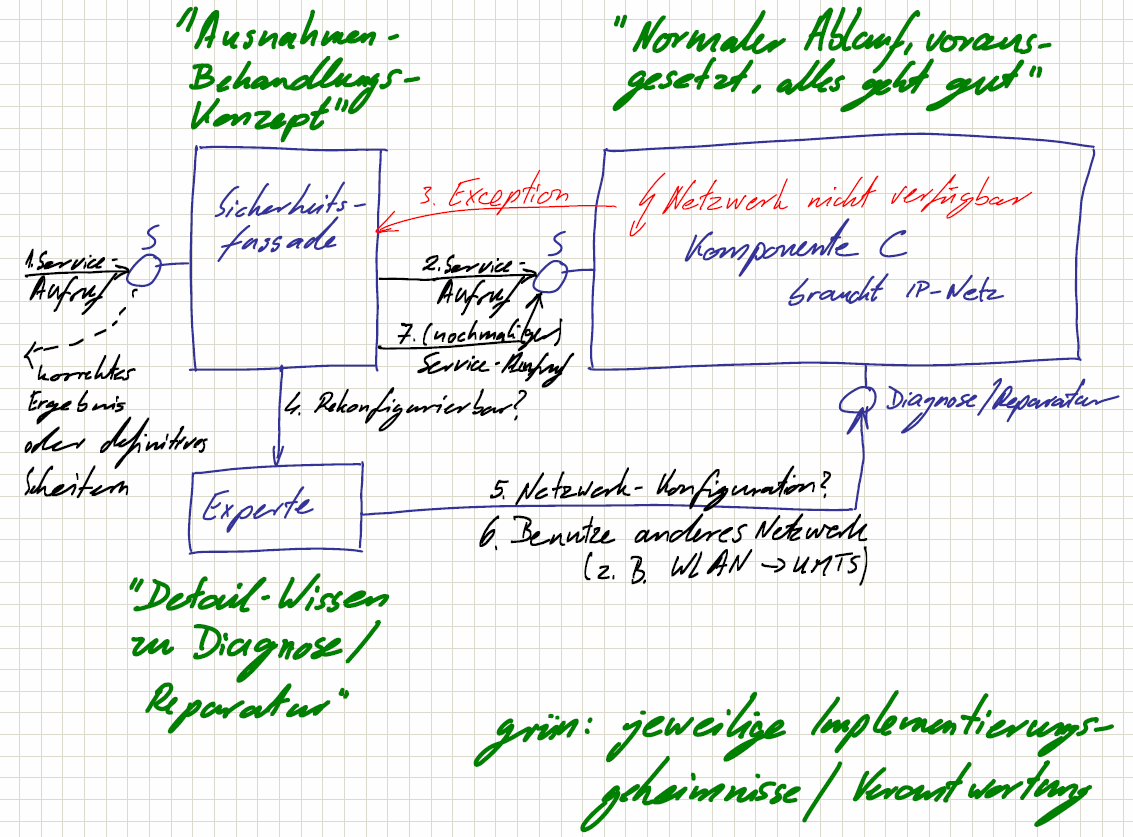 "Ausnahmen-
Behandlungs-
Konzept"
"Normaler Ablauf, voraus-
gesetzt, alles geht gut"
Sicherheits-
fassade
3. Exception
Netzwerk nicht verfügbar
Komponente C
braucht IP-Netz
S
1. Service-
Aufruf
korrektes
Ergebnis
oder definitives
Scheitern
S
2. Service-
Aufruf
7. (nochmaliger)
Service-Aufruf
4. Rekonfigurierbar?
Diagnose/Reparatur
Experte
5. Netzwerk-Konfiguration?
6. Benutze anderes Netzwerk
(z. B. WLAN → UMTS)
"Detail-Wissen
zu Diagnose/
Reparatur"
grün: jeweilige Implementierungs-
geheimnisse / Verantwortung